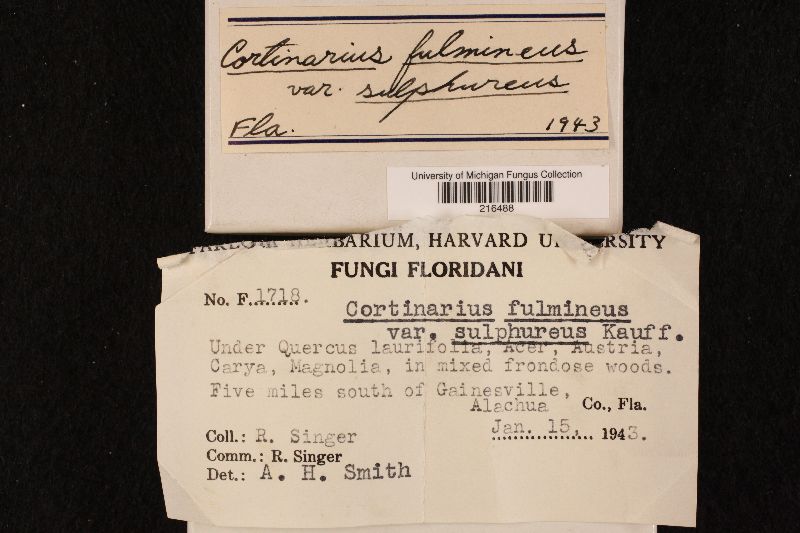 Cortinarius fulmineus
var. sulphureus
Fla. 1943
University of Michigan Fungus Collection
216488
FARLOW HERBARIUM, HARVARD UNIVERSITY
FUNGI FLORIDANI
No. F. 1718.
Cortinarius fulmineus
var. sulphureus Kauff.
Under Quercus laurifolia, Acer, Austria,
Carya, Magnolia, in mixed frondose woods.
Five miles south of Gainesville,
Alachua Co., Fla.
Jan. 15, 1943.
Coll.: R. Singer
Comm.: R. Singer
Det.: A. H. Smith